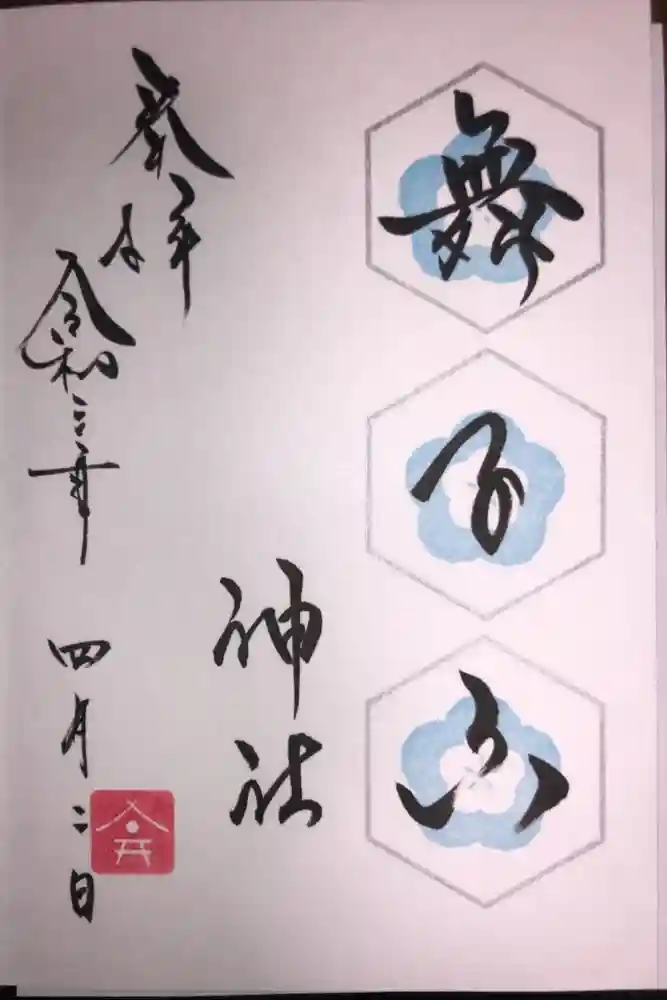 舞子山
神社
奉拝
令和三年四月二日